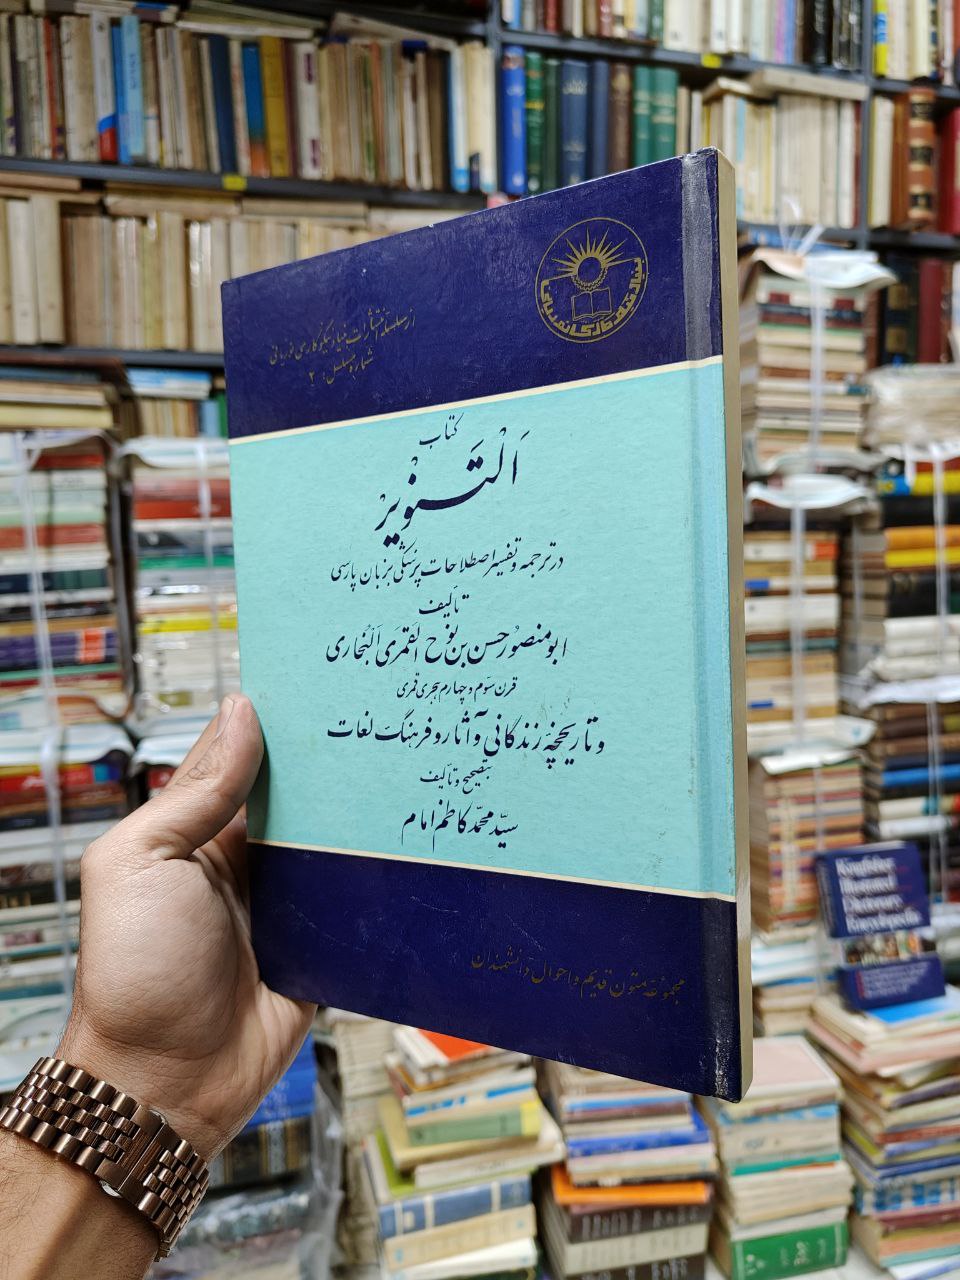 از سلسله انتشارات بنیاد نیکوکاری نوریانی
شماره مسلسل: ۲
بنیاد نیکوکاری نوریانی
کتاب
اَلتَنویرْ
در ترجمه و تفسیر اصطلاحات پزشکی بزبان پارسی
تألیف
ابو منصور حسن بن نوح القمری البخاری
قرن سوم و چهارم هجری قمری
و تاریخچه زندگانی و آثار و فرهنگ لغات
بتصحیح و تألیف
سیّد محمّد کاظم امام
مجموعهٔ متون قدیم و احوال دانشمندان
Kingfisher
Illustrated
Dictionary
Encyclopedia